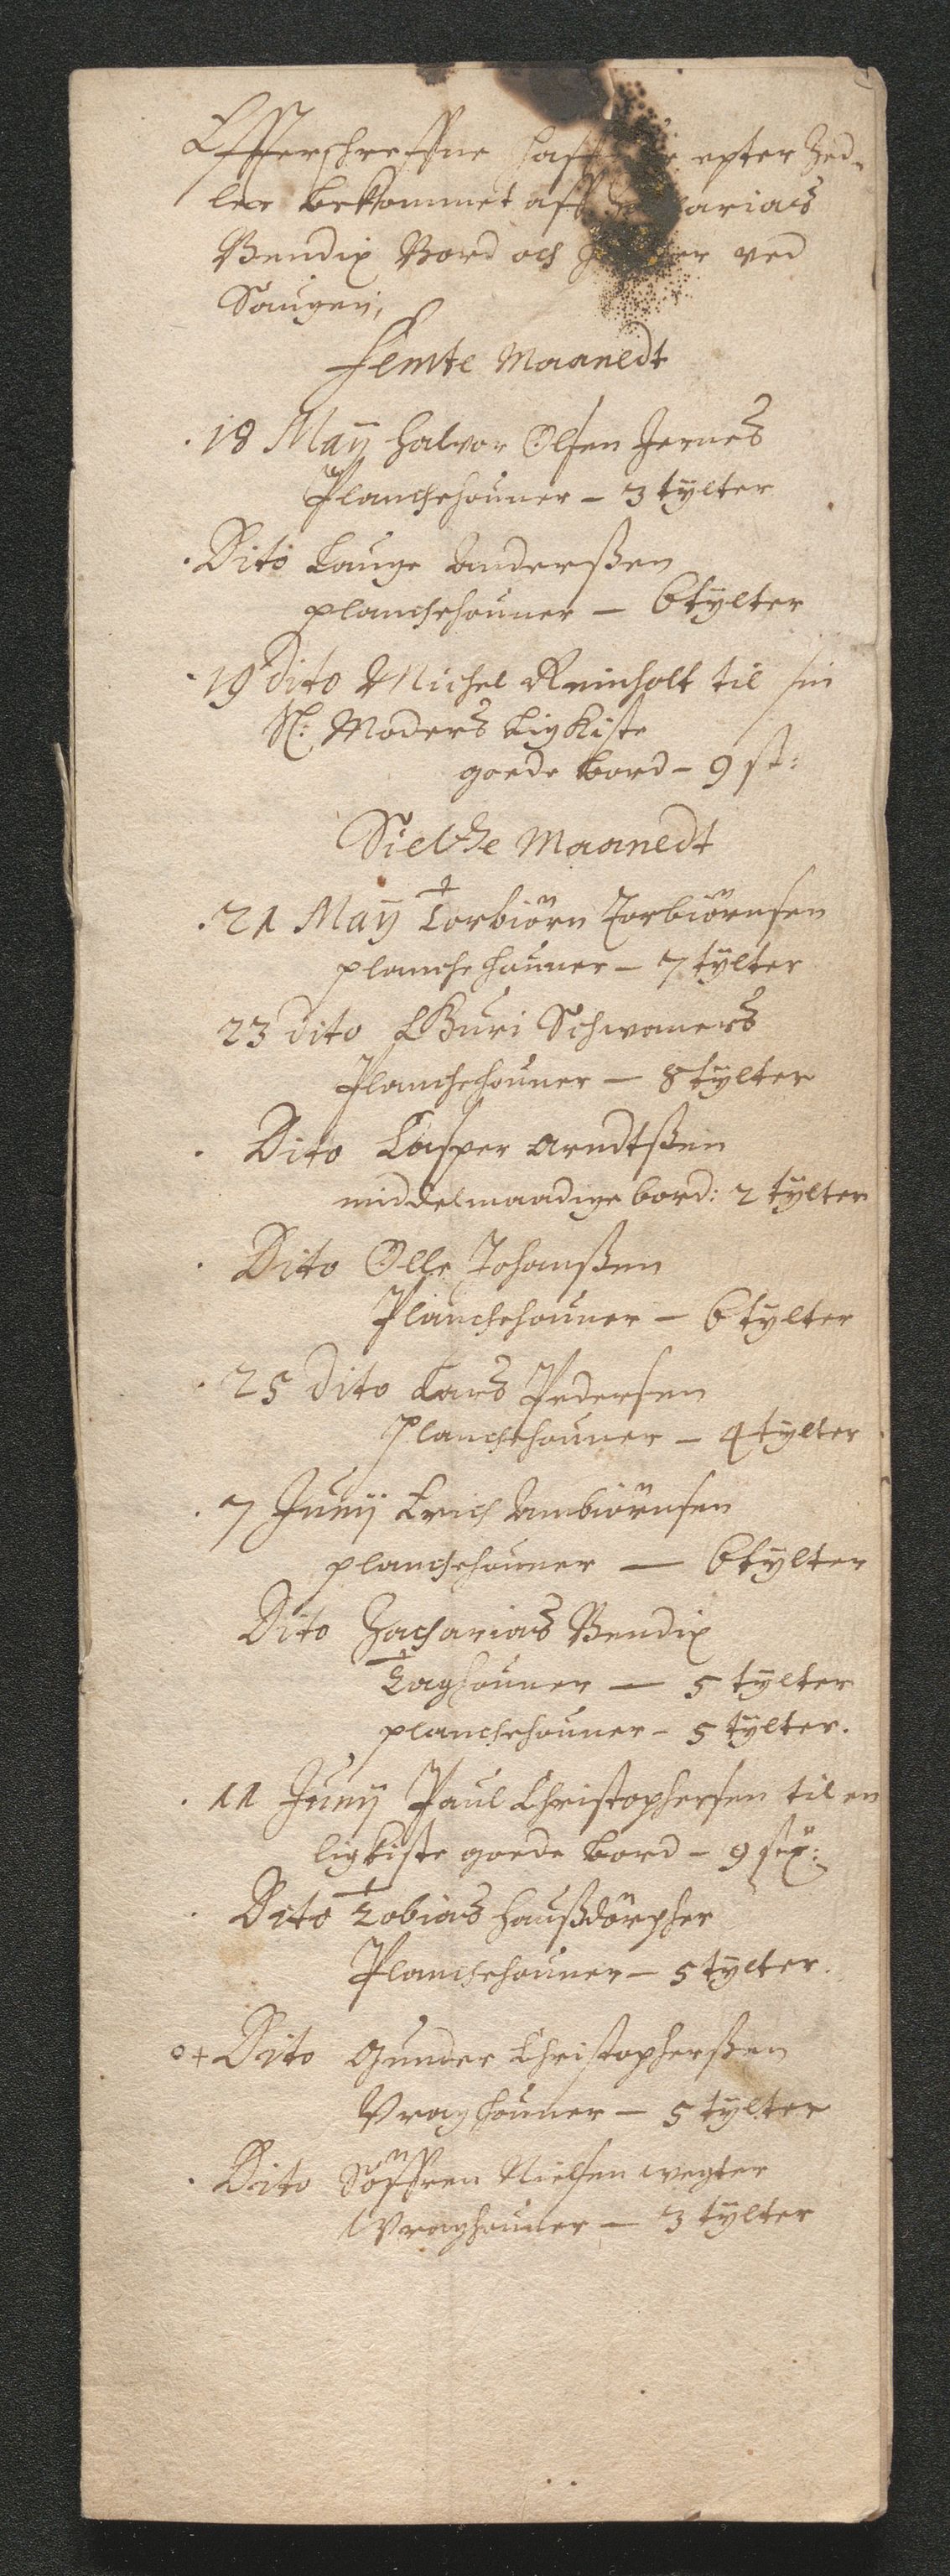 Effterschreffne haff epter Zed-
ler bekommet aff Zacharias
Bendix Bord och ved
Saugen,
Femte Maanedt
18 Maÿ Halvor Olsen Jernes
Planchehouner - 3 tÿlter
Dito Lauge Anderßen
planchehouner - 6 tÿlter
19 dito Michel Reinholt til sin
Sl: Moders Ligkiste
goede bord - 9 st:
Siette Maanedt
21 Maÿ Torbiörn Torbiörnsen
planche houner - 7 tÿlter
23 dito Schwaners
Planchehouner - 8 tÿlter
Dito Casper Arndtßen
middelmaadige bord: 2 tÿlter
Dito Olle Johanßen
Planchehouner - 6 tÿlter
25 dito Lars Pedersen
Planchehouner - 4 tylter
7 Junÿ Erich Ambiörnsen
planchehouner - 6 tÿlter
Dito Zacharias Bendix
Taghouner - 5 tÿlter
planchehouner - 5 tÿlter.
11 Junÿ Paul Christophersen til en
ligkiste goede bord - 9
Dito Tobias Haußdörpher
Planchehouner - 5 tÿlter.
o+ Dito Gunder Christopherßen
Vraghouner - 5 tÿlter
Dito Söffren Nielsen wegter
Vraghouner - 3 tÿlter